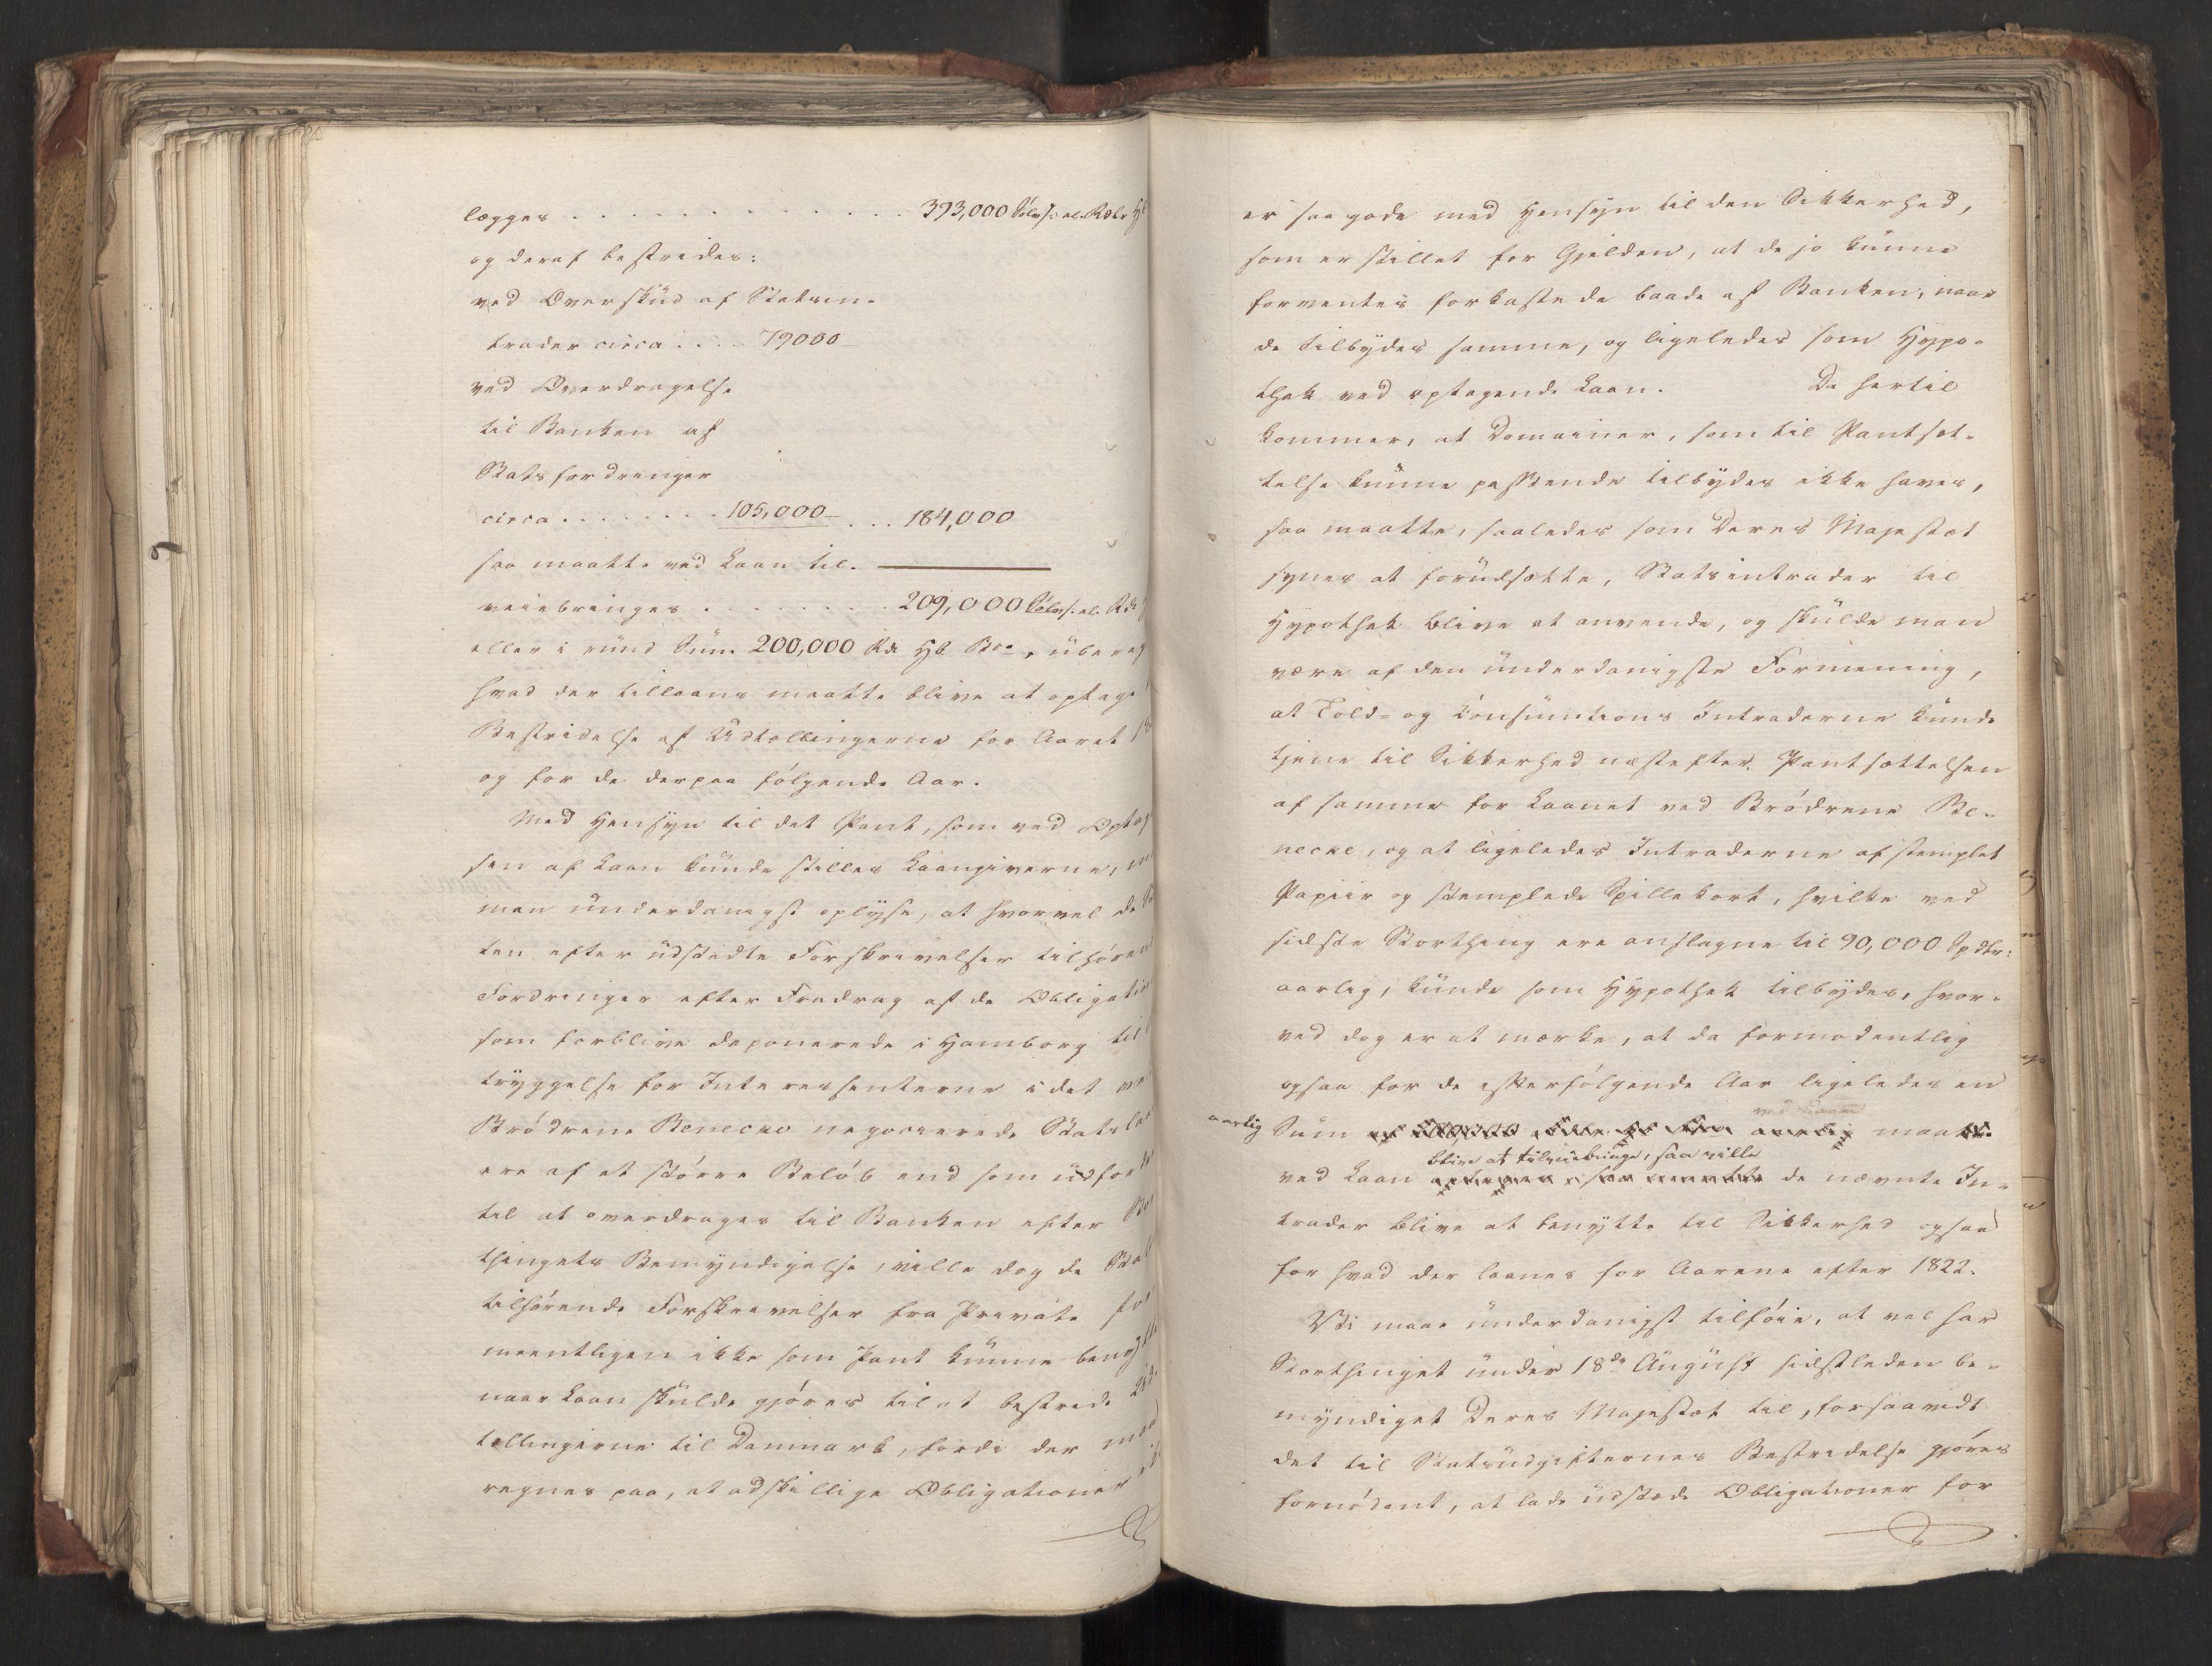 lægges . . . . . . . . . . . . . 393,000 Sølvsp. el. Rdlr Hb
og deraf bestrides:
ved Overskud af Statsin-
trader circa . . . . 79000
ved Overdragelse
til Banken af
Statsfordringer
circa . . . . . . . 105,000 . . . 184,000
saa maatte ved Laan til-
veiebringes . . . . . . . . 209,000 Sølvsp. el. Rd
eller i rund Sum 200,000 Rd Hb Bco,
hvad der tillaans maatte blive at optage
Bestridelse af Udtællingerne for Aaret 18
og for de derpaa følgende Aar.
Med Hensyn til det Pant, som ved Optag
sen af Laan kunde stilles Laangiverne,
man underdanigst oplyse, at hvorvel de
ten efter udstedte Forskrivelser tilhøren
Fordringer efter Fradrag af de Obligatio
som forblive deponerede i Hamborg til
tryggelse for Interessenterne i det ved
Brødrene Benecke negocierede Statslaa
ere af et større Beløb end som udfor
til at overdrages til Banken efter Sto
thingets Bemyndigelse, ville dog de Stat
tilhørende Forskrivelser fra Private for
meentligen ikke som Pant kunne benytte
naar Laan skulde gjøres til at bestride Ud
tællingerne til Danmark, fordi der maa
regnes paa, at adskillige Obligationer
er saa gode med Hensyn til den Sikkerhed,
som er stillet for Gjelden, at de jo kunne
forventes forkastede baade af Banken, naar
de tilbydes samme, og ligeledes som Hypo-
thek ved optagende Laan. Da hertil
kommer, at Domainer, som til Pantsæt-
telse kunne passende tilbydes ikke haves,
saa maatte, saaledes som Deres Majestæt
synes at forudsætte, Statsintrader til
Hypothek blive at anvende, og skulde man
være af den underdanigste Formening,
at Told- og Consumtions Intraderne kunde
tjene til Sikkerhed næstefter Pantsættelsen
af samme for Laanet ved Brødrene Be-
necke, og at ligeledes Intraderne af stemplet
Papiir og stemplede Spillekort, hvilke ved
sidste Storthing ere anslagne til 90,000 Spdlr.
aarlig, kunde som Hypothek tilbydes, hvor-
ved dog er at mærke, at da formodentlig
ogsaa for de efterfølgende Aar ligeledes en
aarlig Sum maatte
blive at tilveiebringe, saa ville
ved Laan de nævnte In-
trader blive at benytte til Sikkerhed ogsaa
for hvad der laanes for Aarene efter 1822.
Vi maae underdanigst tilføie, at vel har
Storthinget under 18de August sidstleden be-
myndiget Deres Majestæt til, forsaavidt
det til Statsudgifternes Bestridelse gjøres
fornødent, at lade udstæde Obligationer for